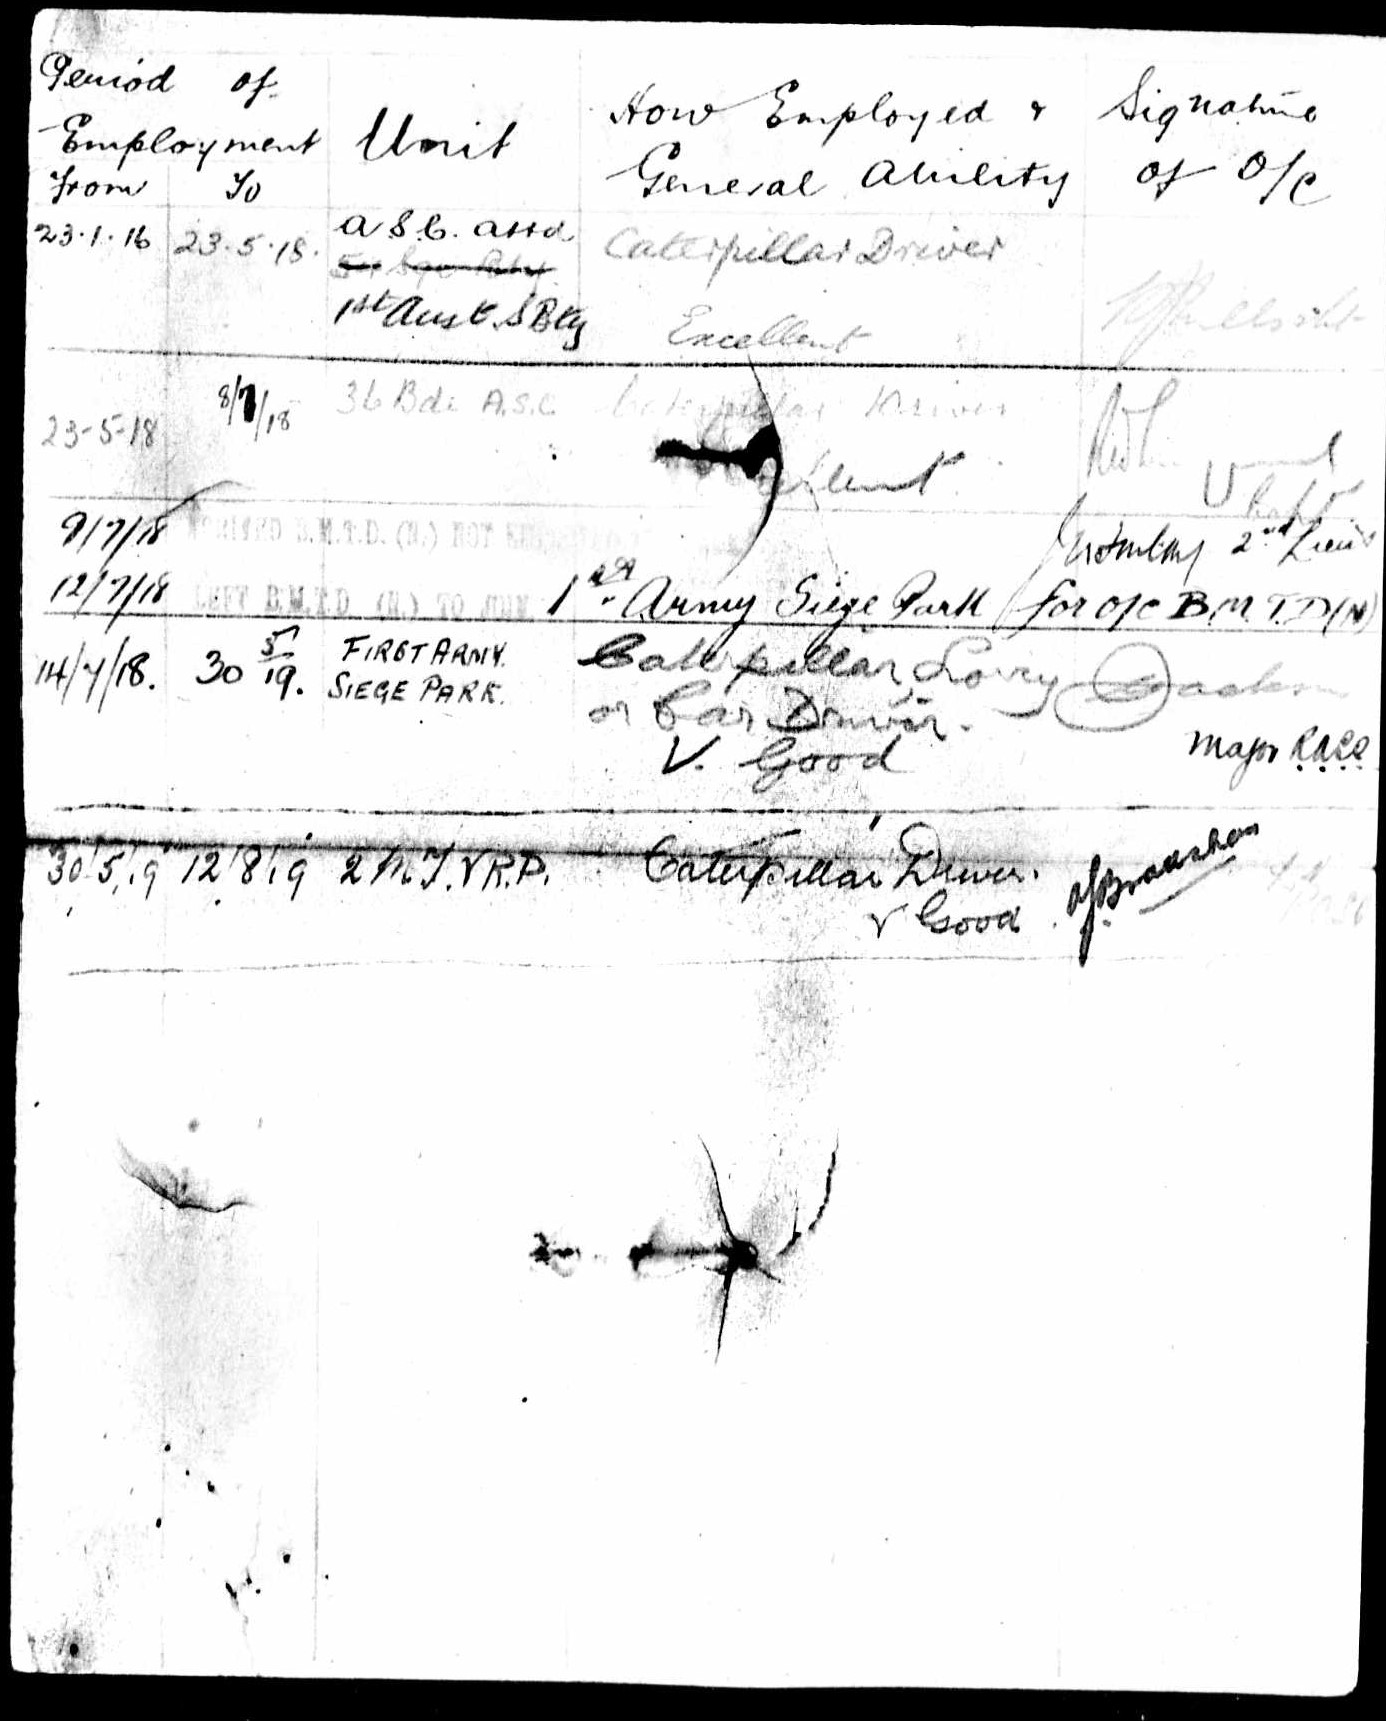 Period of
Employment
From To
Unit
How Employed &
General Ability
Signature
of O/C
23.1.16 23.5.18. A.S.C. attd Caterpillar Driver
1st Aust. S Bty Excellent
23-5-18 8/7/18 36 Bde A.S.C. Caterpillar Driver
Capt
9/7/18 2nd Lieut
12/7/18 LEFT B.M.T.D. (N.) TO JOIN 1st Army Siege Park for O/C B.M.T.D (N)
14/7/18. 30 5/19. FIRST ARMY Caterpillar, Lorry Jackson
SIEGE PARK. or Car Driver.
V. Good Major R.A.S.C.
30/5/19 12/8/19 2 M.T.V.R.P. Caterpillar Driver.
V Good